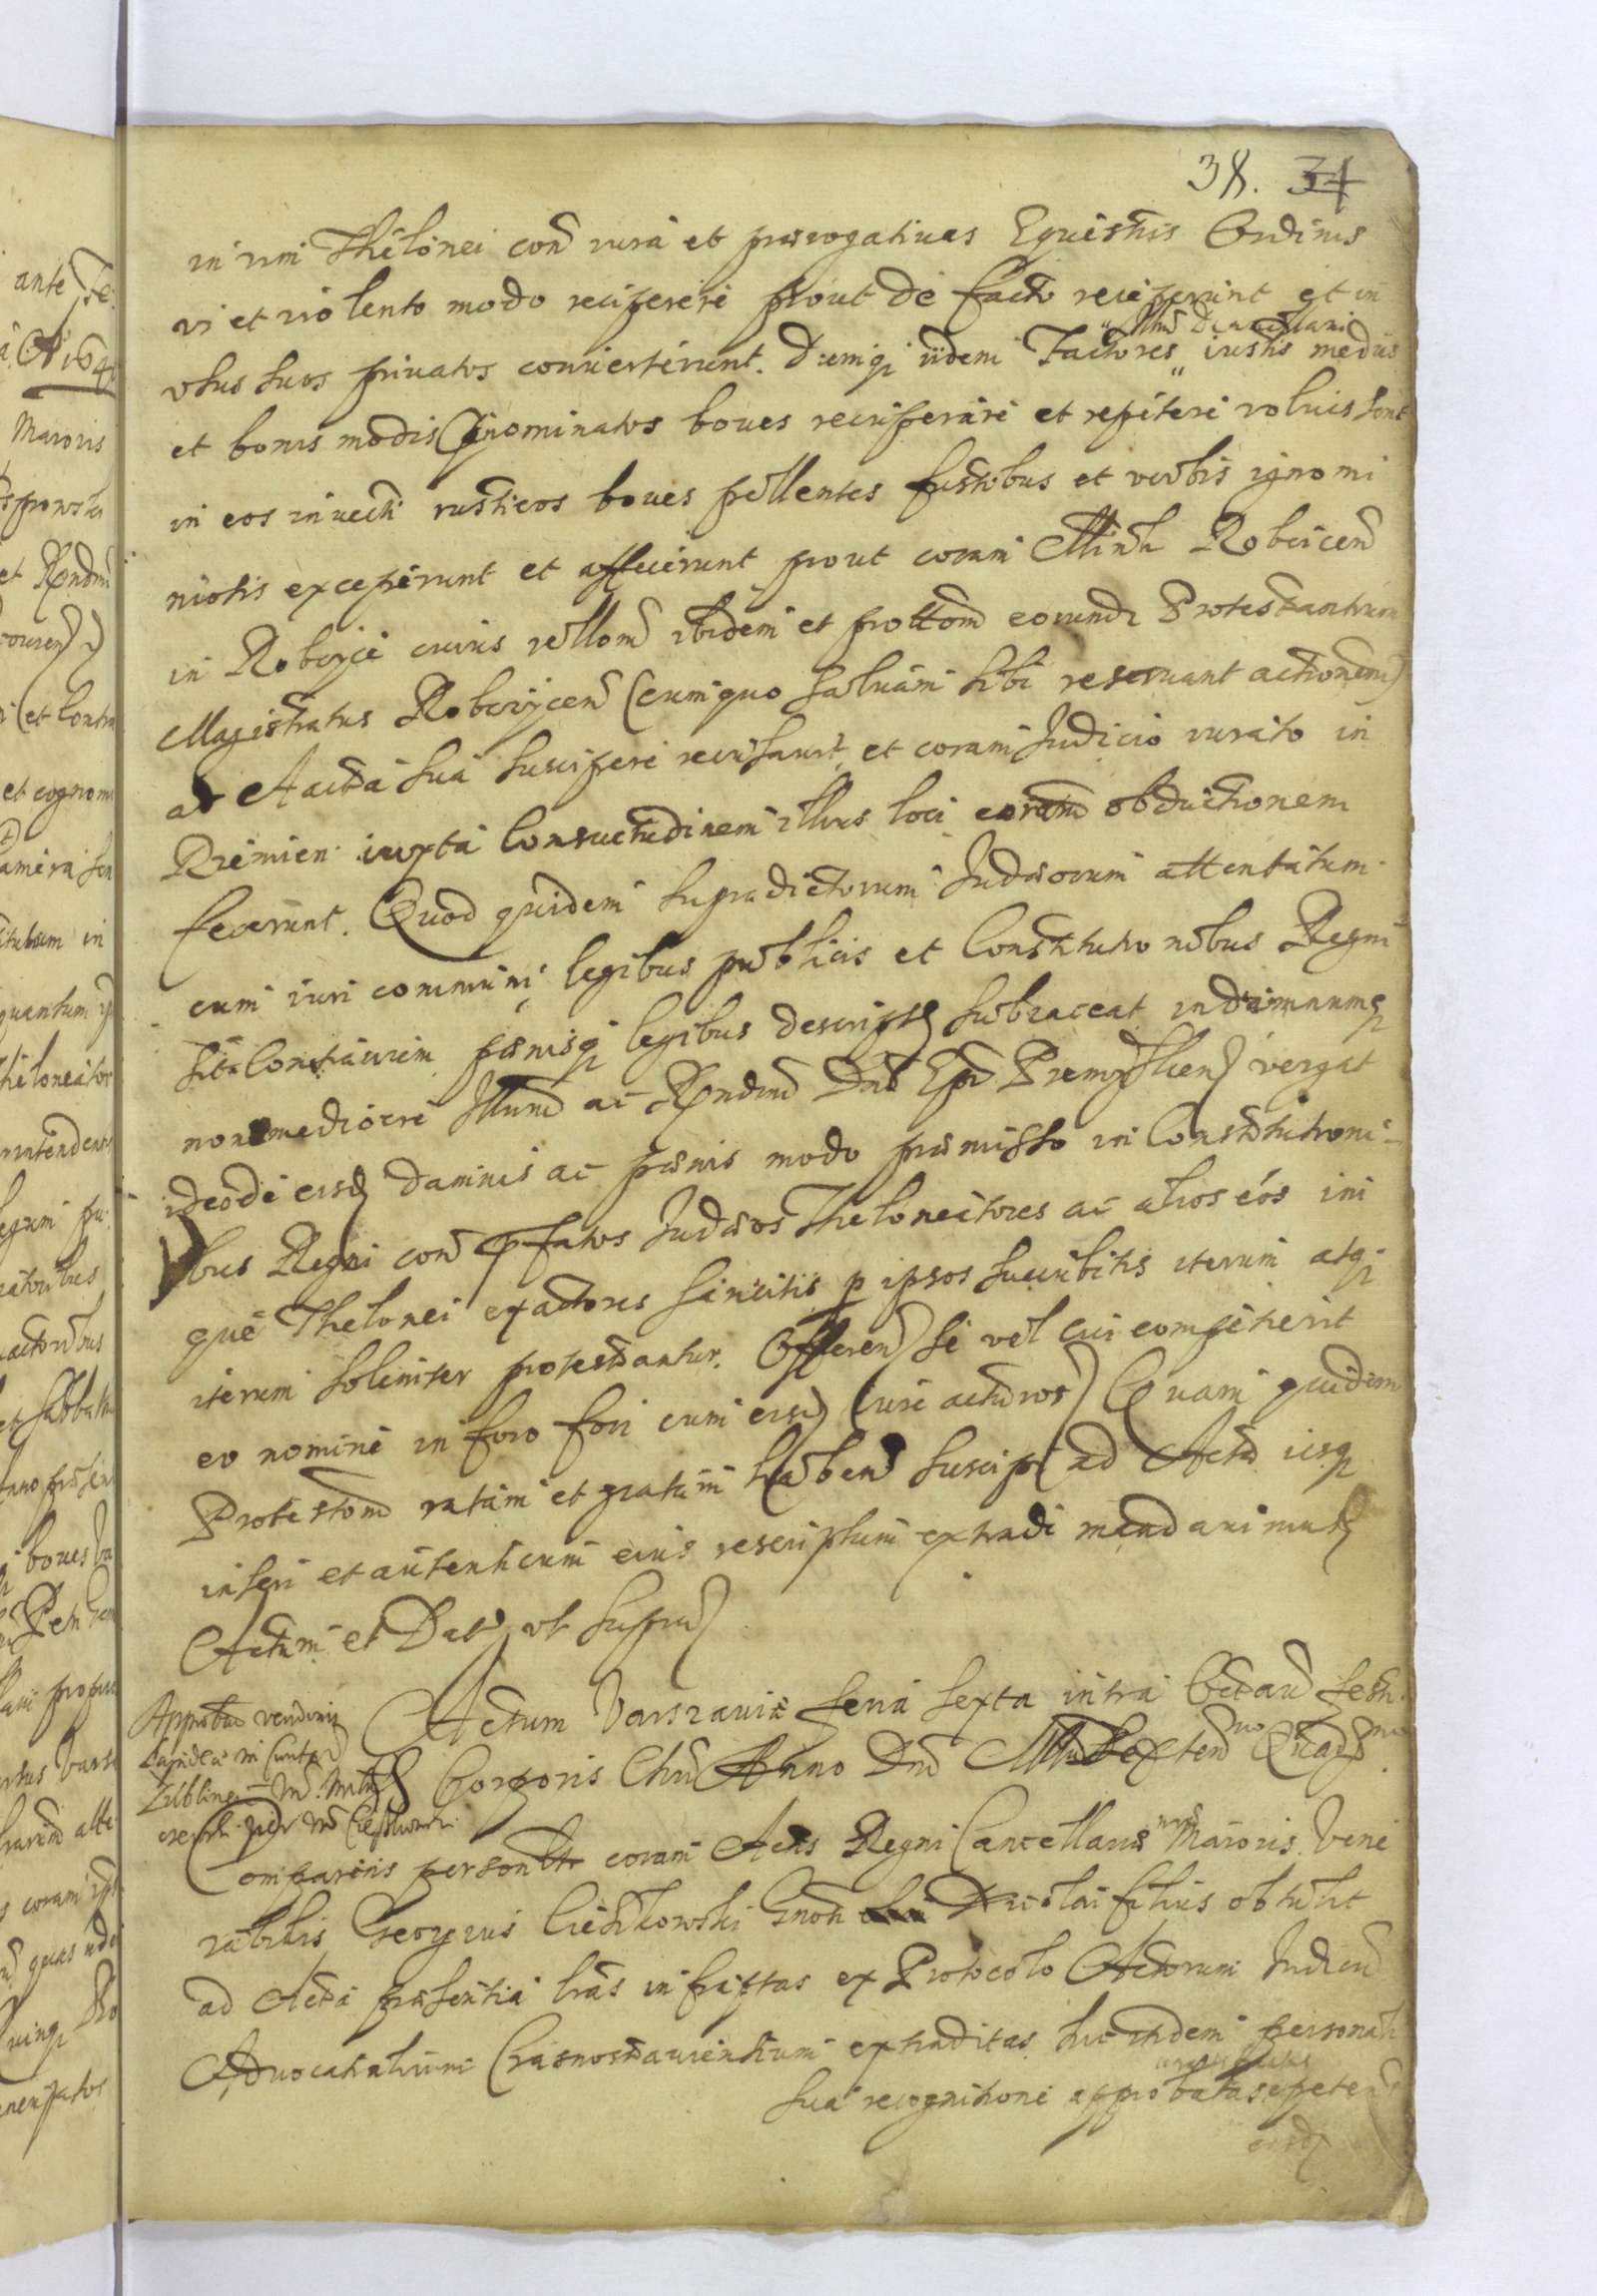 38. 34
in vim Thelonei con̄ iura et praerogativas Equestris Ordinis
vi et violento modo recipere prout de facto receperunt et in
usus suos privatos converterunt. Dumq; iidem Factores " Illmi D. Cancellarii " iustis mediis
et bonis modis p̄nominatos boves recuperare et repetere voluissent
in eos invecti rusticos boves pellentes fustibus et verbis ignomi
niosis exceperunt et affecerunt prout coram Robcicen̄
in Robcyce cuius rellom̄ ibidem et prottom̄ eorund; Protestantium
Magistratus Robcyicen̄ (cum quo salvam sibi reservant actionem)
ad Aacta sua suscipere recusavit, et coram Judicio iurato in
Premien. iuxta Consuetudinem illius loci obductionem
fecerunt. Quod quidem supradictorum Judaeorum attentatum
cum iuri communi legibus publicis et Constitutionibus Regni
sit contrarium paenisq; legibus descriptis subiaceat, in damnumq;
non mediocre Illmi ac Rndmi Dni Epi Premyslien̄ vergat
ideo de eisd damnis ac paenis modo praemisso in Constitutioni
bus Regni con̄ p̄fatos Judaeos Theloneatores ac alios eos ini
que Thelonei exactores sancitis p ipsos succubitis iterum atq;
iterum solemniter protestantur. Offeren̄ se vel cui competierit
eo nomine in foro fori cum eisd iure acturos) Quam quidem
Protestom̄ ratam et gratam haben̄ suscipi ad Acta iisq;
inseri et autenticum eius rescriptum extradi mandavimus
Actum et Dat ut supra
Approbao vendionis
Lapidea in Civitate
Lublinen
Ciesslkowski
Actum Varsaviae feria sexta intra Octavā festi
Corporis Chri Anno Dni Millo Sexcentmo Quadmo
Comparens personltr coram Actis Regni Cancellariae Maioris Vene
rabilis Georgius Ciesslkowski Gnosi Nicolai filius obtulit
ad Acta praesentia lras infrptas ex Protocolo Actorum Judicii
Advocatialium Crasnostaviensium extraditas, hic ibidem personali
sua recognitione approbatas petens
eisd